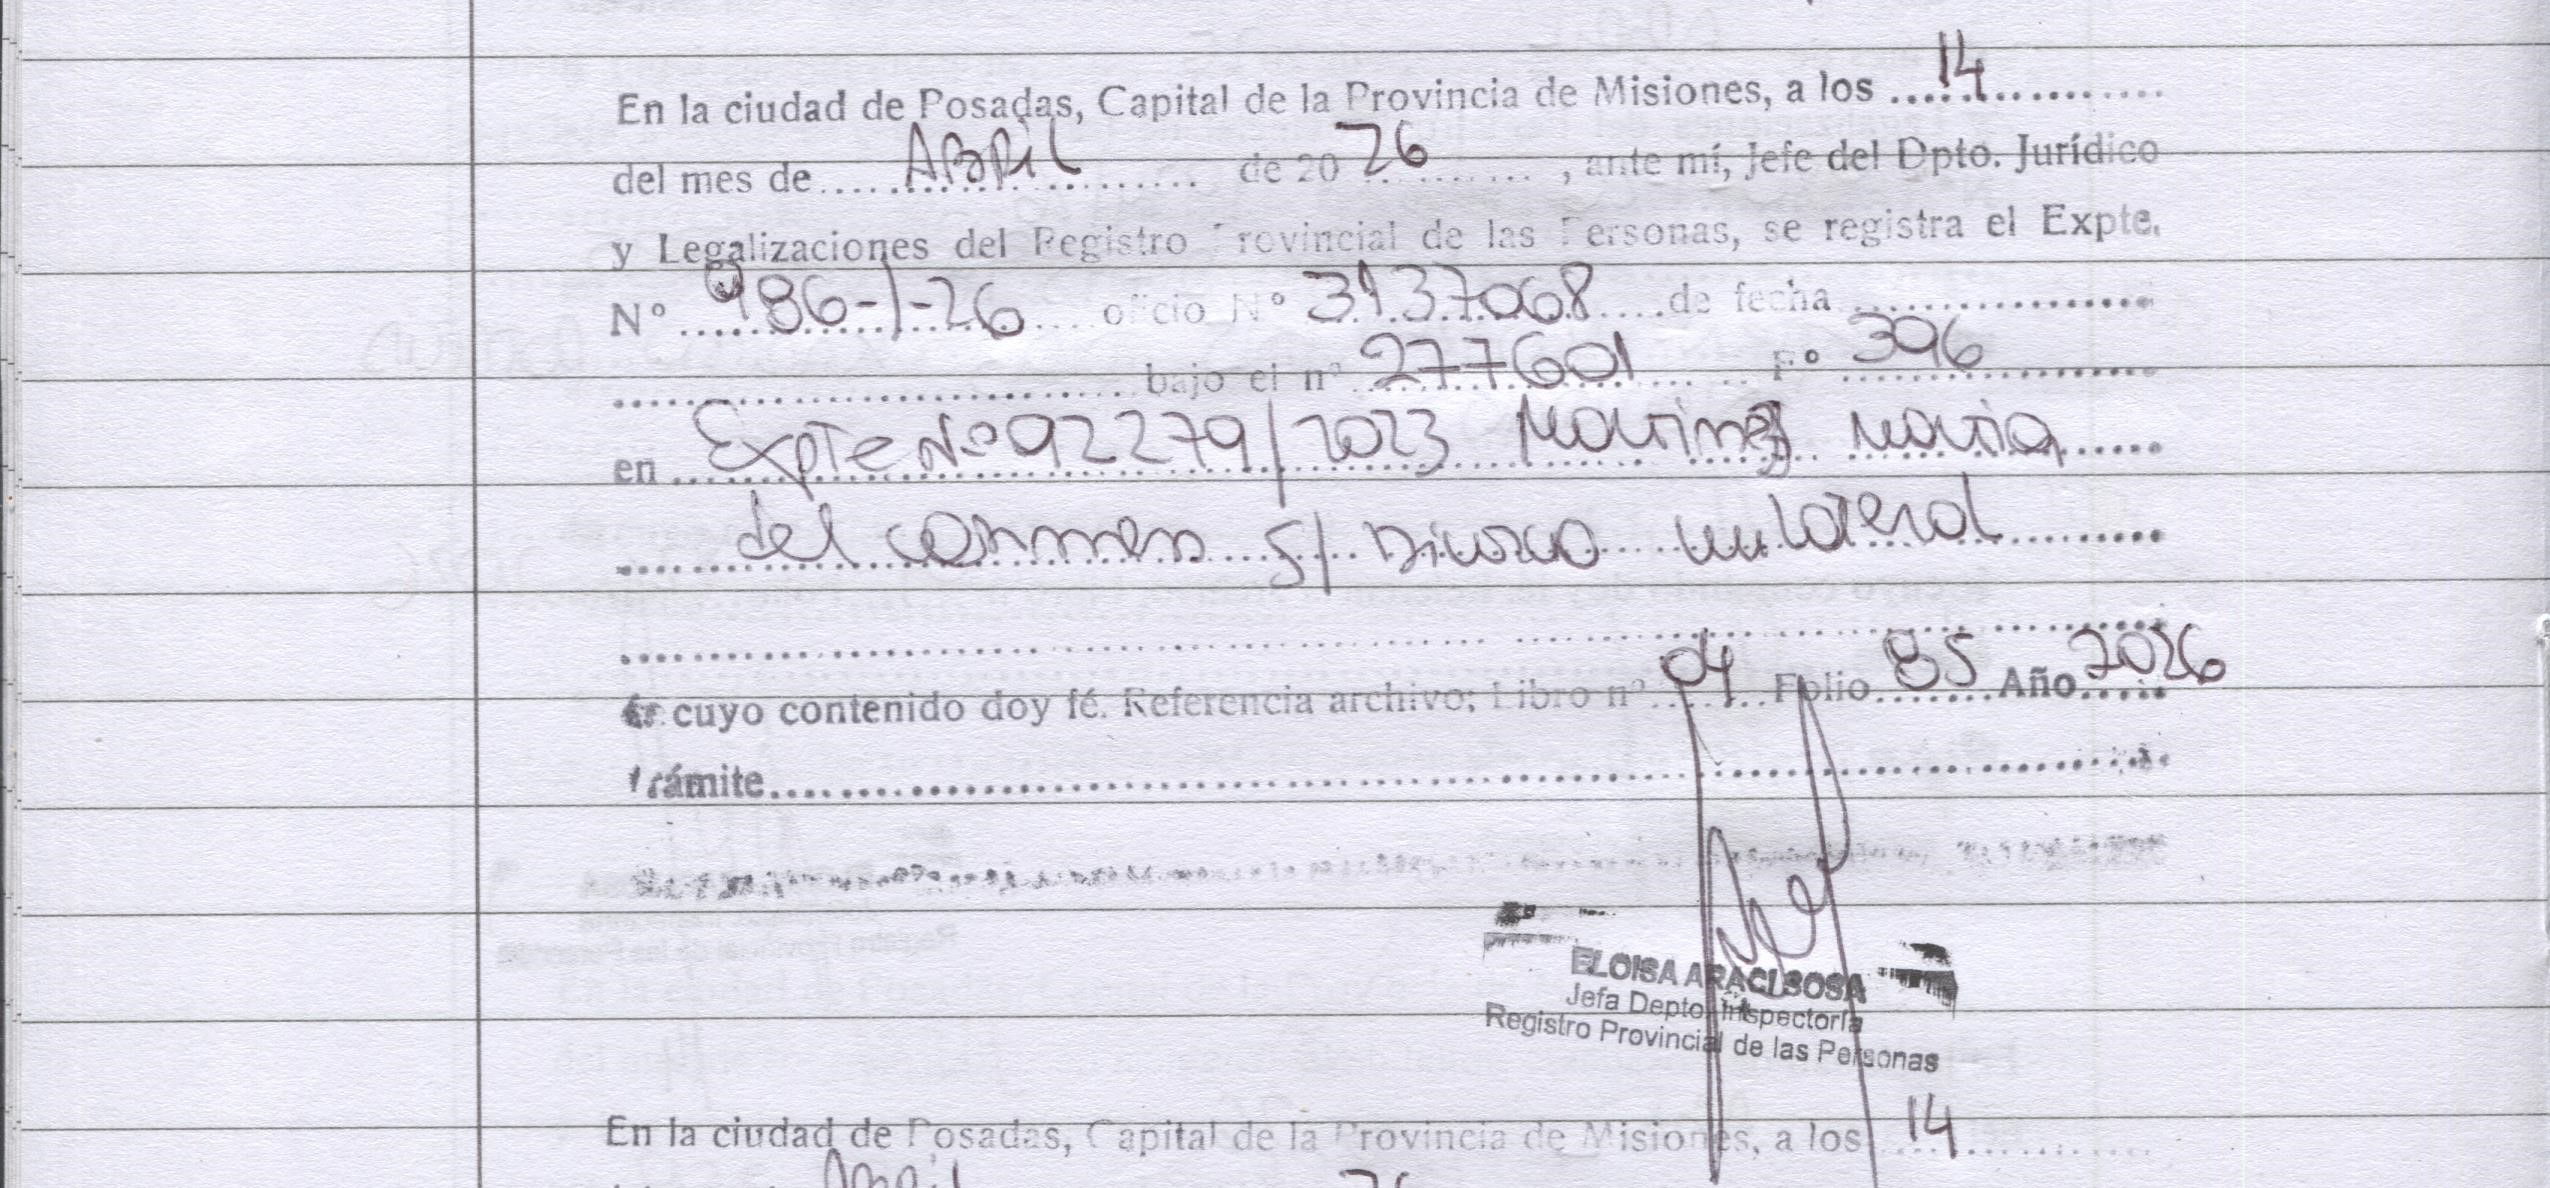 En la ciudad de Posadas, Capital de la Provincia de Misiones, a los 14
del mes de ABRil de 20 26, ante mí, Jefe del Dpto. Jurídico
y Legalizaciones del Registro Provincial de las Personas, se registra el Expte.
Nº 986-1-26 oficio Nº 3137068 de fecha
bajo el nº 277601 Fº 396
en Expte Nº 92279/2023 Martinez Maria
del carmen S/ Divorcio unilateral
cuyo contenido doy fé. Referencia archivo: Libro nº 04 Folio 85 Año 2026
Trámite
ELOISA ARACI SOSA
Jefa Depto. Inspectoría
Registro Provincial de las Personas
En la ciudad de Posadas, Capital de la Provincia de Misiones, a los 14
Abril 26